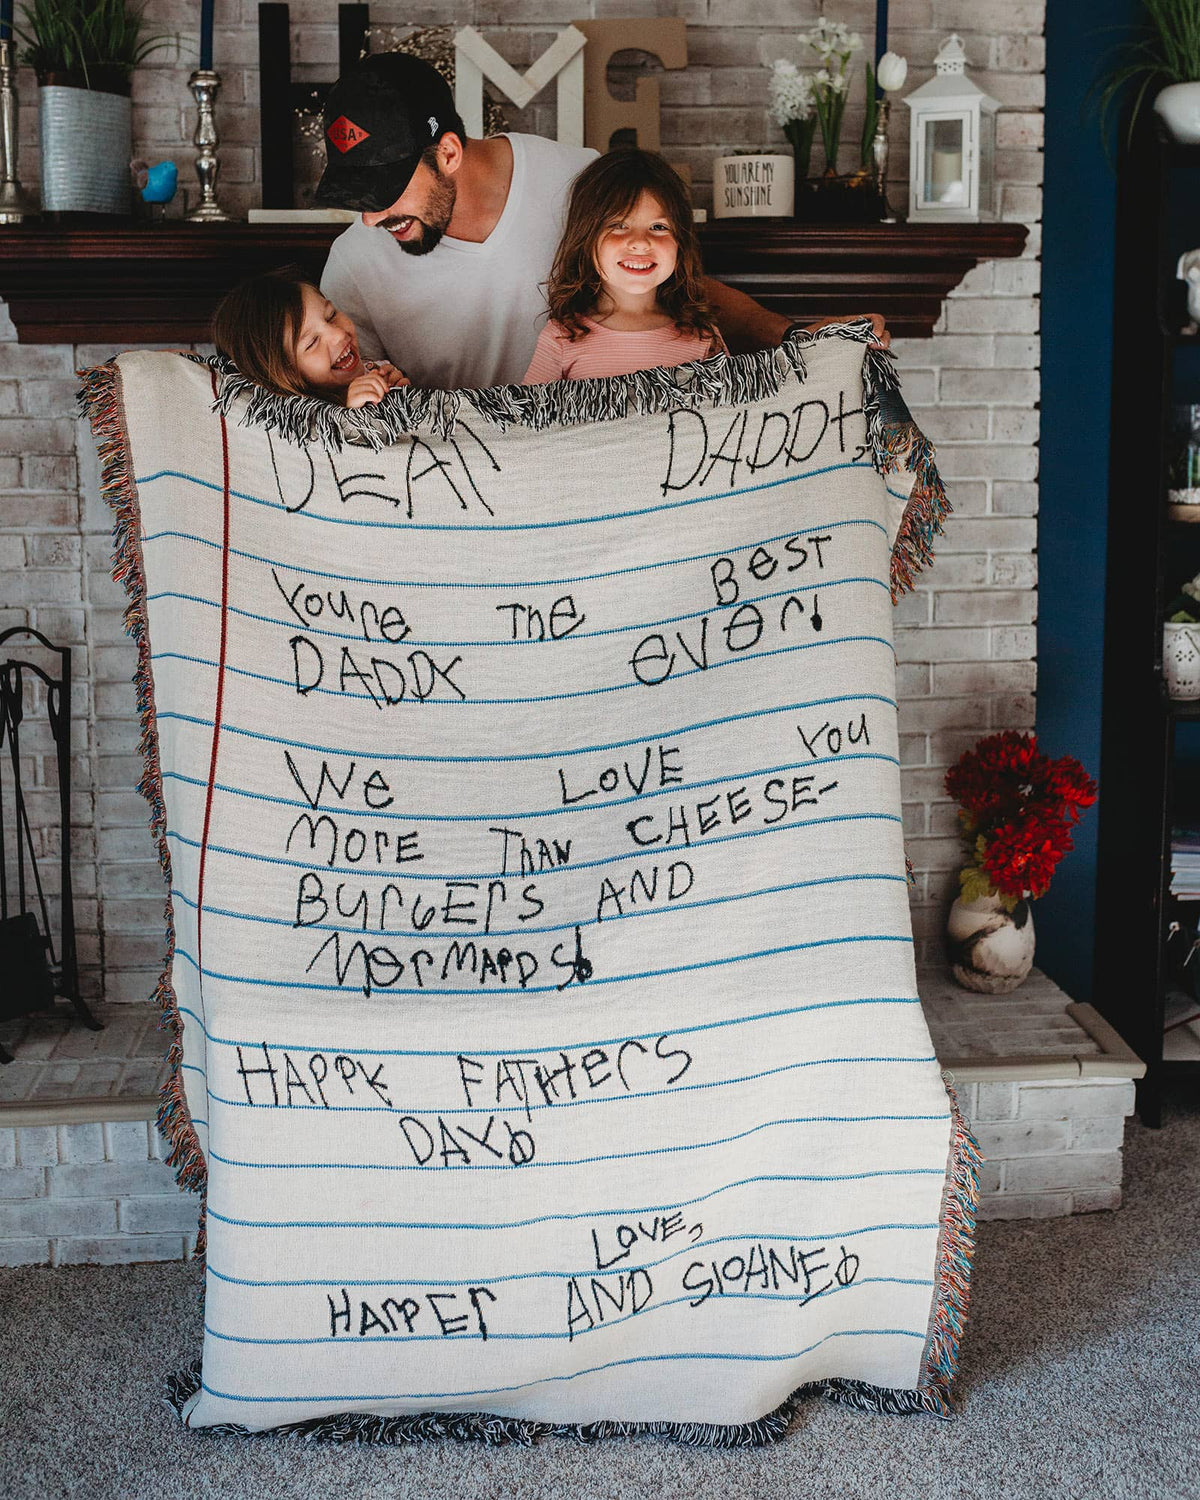 USA
HOME
YOU ARE MY
SUNSHINE
DEAr DADDY,
Youre THe BesT
DADDY ever!
We LOVE YOU
MOrE ThAN CHEESE-
BUrGErS AND
MerMAIDS!
HAPPY FATHers
DAY!
LOVE,
HArPEr AND SIOHNE!